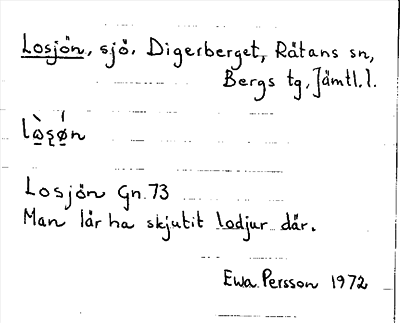 Losjön, sjö, Digerberget, Råtans sn,
Bergs tg, Jämtl. l.
lò̱ʂǿ̱n
Losjön Gn. 73
Man lår ha skjutit lodjur där.
Ewa Persson 1972